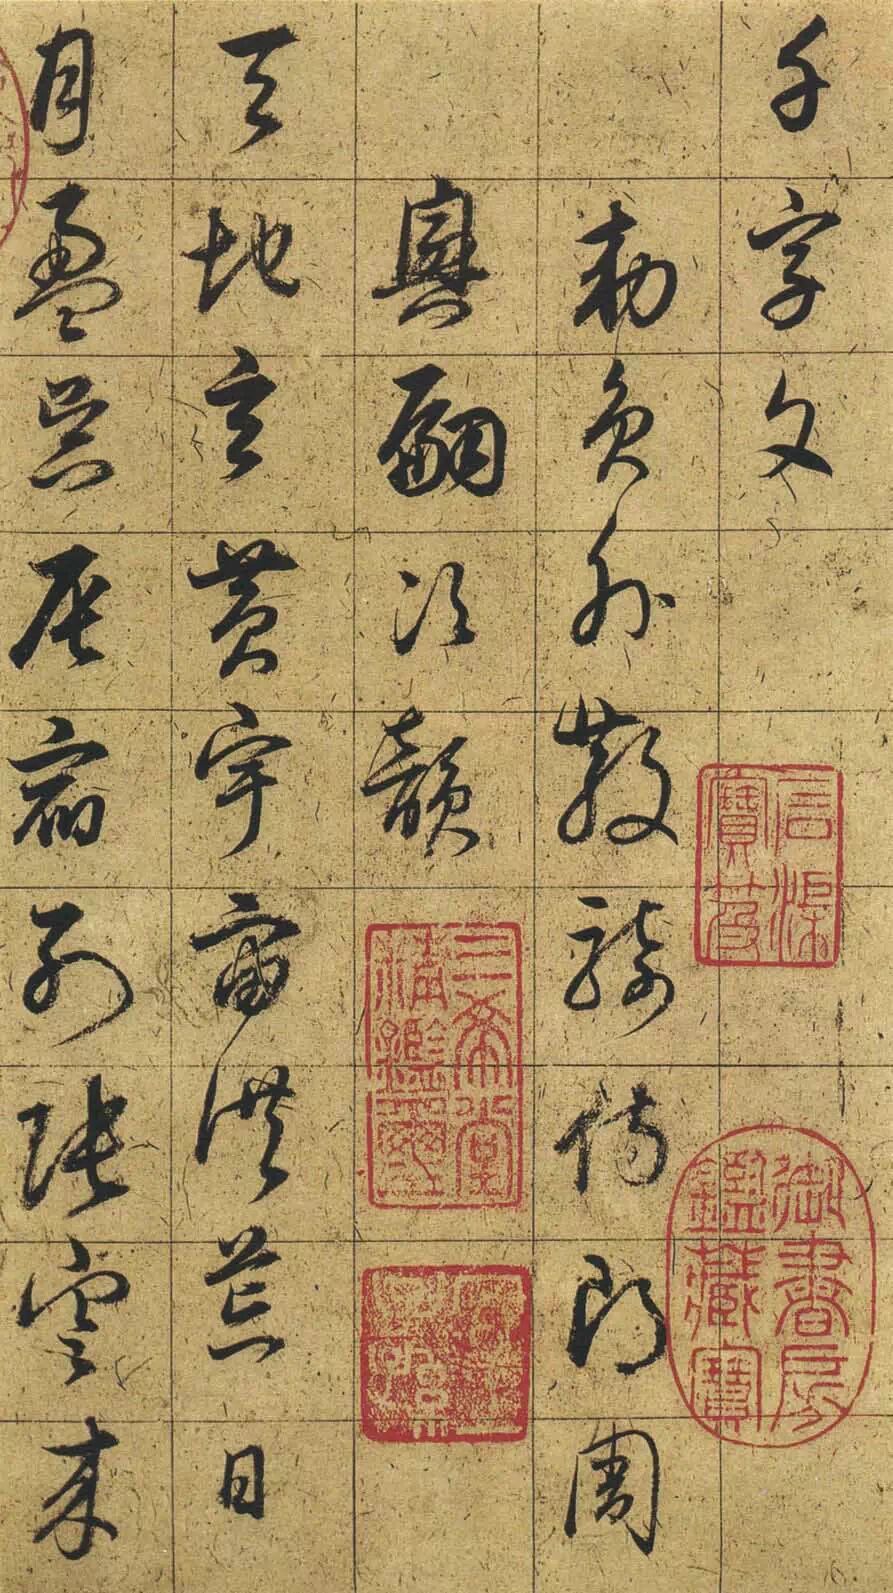 千字文
勅員外散騎侍郎周
興嗣次韻
天地玄黃宇宙洪荒日
月盈昃辰宿列張寒来
石渠寶笈
御書房鑑藏寶
三希堂精鑑璽